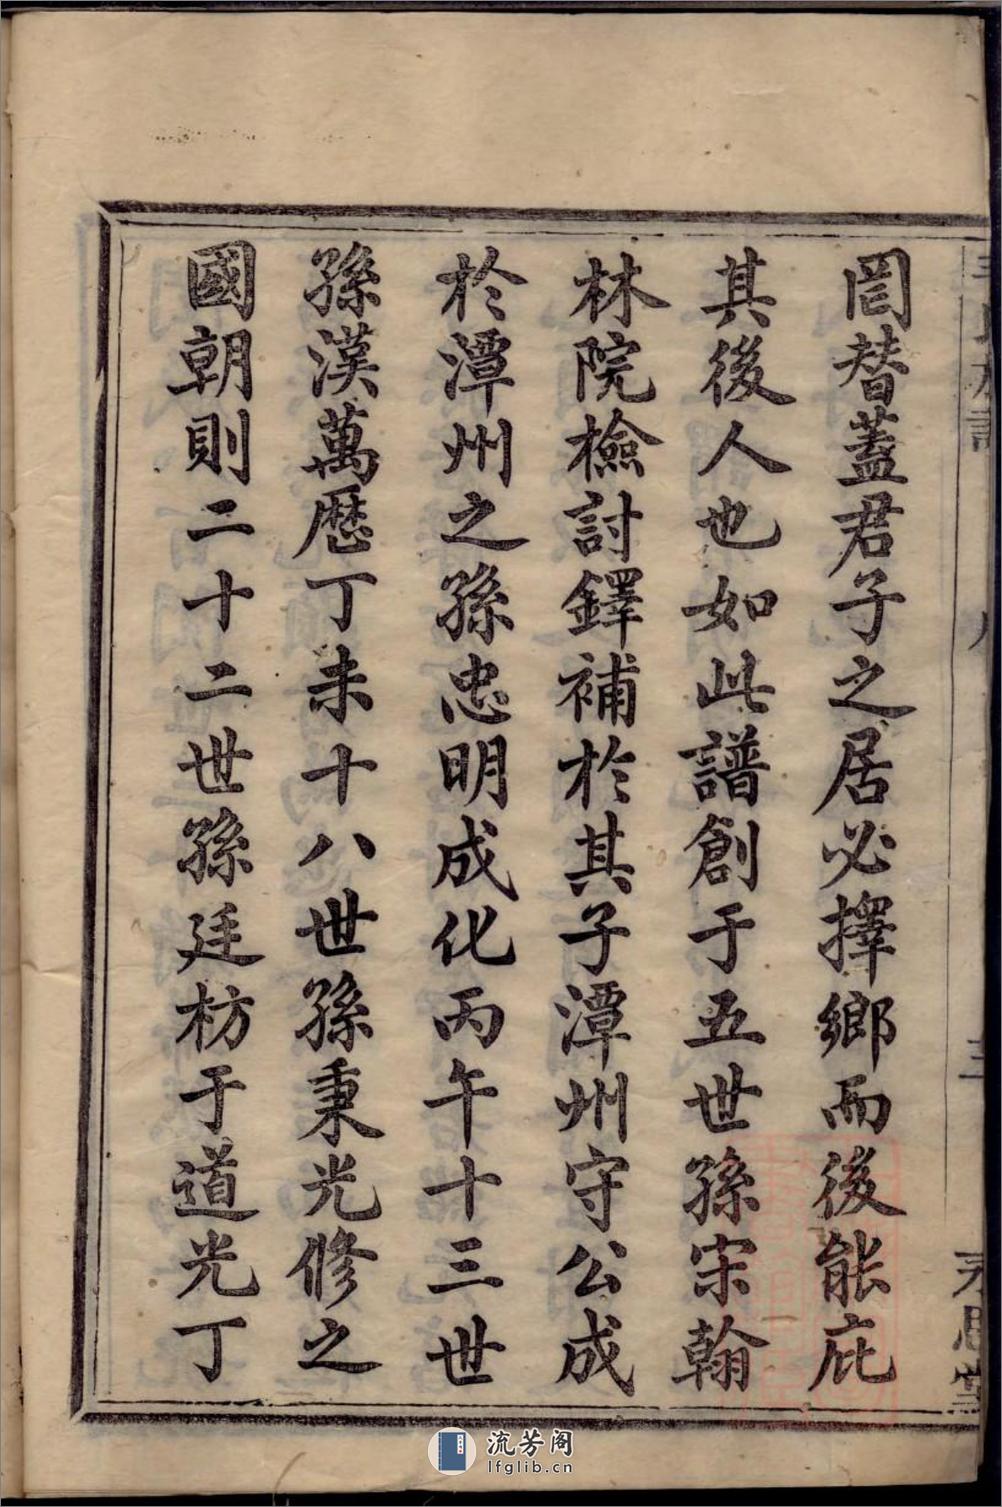 罔替蓋君子之居必擇鄉而後能庇
其後人也如此譜創于五世孫宋翰
林院檢討鐸補於其子潭州守公成
於潭州之孫忠明成化丙午十三世
孫漢萬歷丁未十八世孫秉光修之
國朝則二十二世孫廷枋于道光丁
流芳阁
lfglib.cn